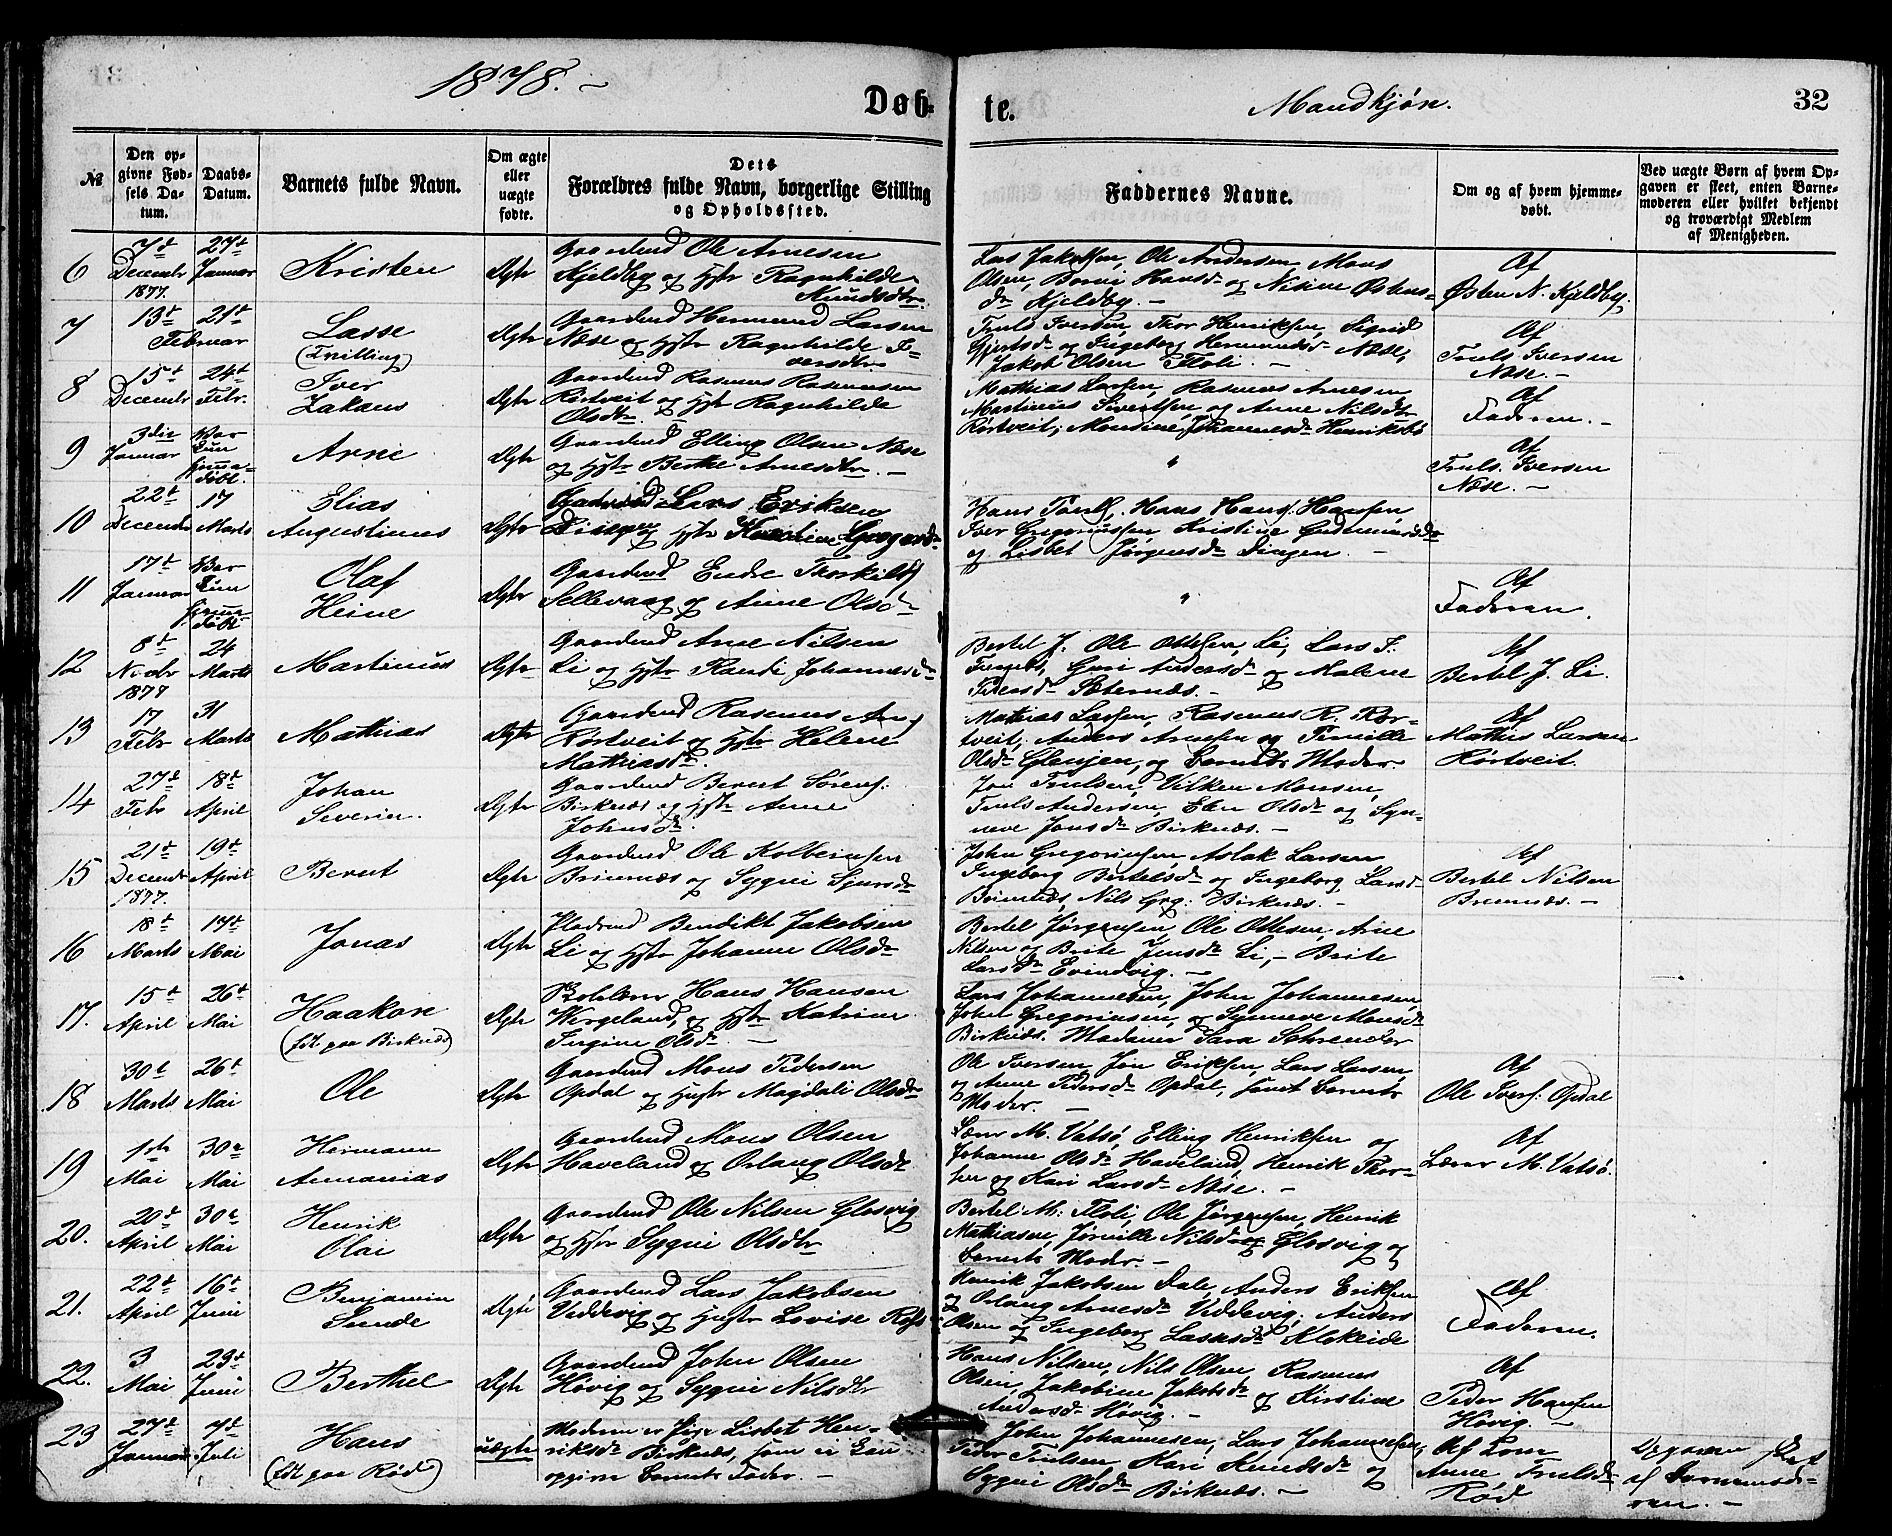 1878. -
Døb-
te.
Mandkjøn.
32
№
Den op-
givne Fød-
sels Da-
tum.
Daabs-
Datum.
Barnets fulde Navn.
Om ægte
eller
uægte
fødte.
Dets
Forældres fulde Navn, borgerlige Stilling
og Opholdssted.
Faddernes Navne.
Om og af hvem hjemme-
døbt.
Ved uægte Børn af hvem Op-
gaven er skeet, enten Barne-
moderen eller hvilket bekjendt
og troværdigt Medlem
af Menigheden.
6
7d
Decembr
1877.
27d
Januar
Kristen
Ægte
Gaardmd Ole Arnesen
Kjeldby og Hstr Ragnhilde
Knudsdtr.
Lars Jakobsen, Ole Andersen, Mons
Olsen, Hansdr og Nisine Østens-
dr Kjeldby. -
Af
Østen N. Kjeldby.
7
13d
21d
Februar
Lasse
(Tvilling)
Ægte
Gaardmd Hermund Larsen
Næse og Hstr Ragnhilde I-
versdtr
Truls Iversen, Thor Henriksen, Sigrid
Gjertsdr og Ingeborg Hermundsdr Næse,
Jakob Olsen Floli. -
Af
Truls Iversen
Næse. -
8
15d
Decembr
24d
Febr.
Iver
Zakaus
Ægte
Gaardmd Rasmus Rasmussen
Rörtveit og Hstr Ragnhilde
Olsdtr.
Mathias Larsen, Rasmus Arnesen
Martinus Sivertsen, og Anne Nilsdtr
Rörtveit, Johannesdr Henriksbö
Af
Faderen. -
9
3die
Januar
Var
kun
hjemme-
døbt.
Arne
Ægte
Gaardmd Elling Olsen Næse
og Hstr Berthe Arnesdtr. -
"
Af
Truls Iversen
Næse. -
10
22d
Decembr
17
Marts
Elias
Augustinus
Ægte
Lars Eriksen
Dingen og Hstr
Hans Hans Hans. Hansen
Iver Gregoriussen, Kristine Gudmundsdr
og Lisbet Jørgensdr Dingen. -
11
17d
Januar
Var
kun
hjemme-
døbt
Olaf
Heine
Ægte
Gaardmd Endre Thorkilds
Sellevaag og Anne Olsdr
"
Af
Faderen.
12
8d
Novbr
1877
24
Marts
Martinus
Ægte
Gaardmd Arne Nilsen
Li og Hstr Randi Johannesdr
Bertel J. Ole Ottesen, Li, Lars J.
Guri Andersdr og Malene
Pedersdr Sæternæs. -
Af
Bertel J. Li.
13
17
Febr
31
Marts
Mathias
Ægte
Gaardmd Rasmus Arns
Rörtveit og Hstr Helene
Mathiasdr.
Mathias Larsen, Rasmus R. Rör-
tveit, Anders Arnesen og Pernille
Olsdr Glenjen, og Barnets Moder.
Af
Mathis Larsen
Rörtveit.
14
27d
Febr
18d
April
Johan
Severin.
Ægte
Gaardmd Berent Sørens.
Birknæs og Hstr Anne
Johnsdr.
Jon Trulsen, Vilken Monsen,
Truls Andersen, Elen Olsdr og Syn-
neve Jonsdr Birknæs. -
15
21d
Decembr
1877.
19d
April
Berent
Ægte
Gaardmd Ole Kolbeinsen
Brimnæs og Sygni Sjursdr
John Gregoriusen, Aslak Larsen
Ingeborg Bertelsdr og Ingeborg Larsdr
Brimnæs, Nils Grg. Birknæs. -
Af
Bertel Nilsen
Brimnæs. -
16
18d
Marts
17d
Mai
Jonas
Ægte
Pladsmd Bendikt Jakobsen
Li og Hstr Johanne Olsdr
Bertel Jørgensen, Ole Ottesen, Arne
Nilsen og Brite Jensdr Li, - Brite
Larsdr Evindvig. -
17.
15d
April
26d
Mai
Haakon
(fdt paa Birknæs)
Ægte
Hans Hansen
Wergeland, og Hstr Katrine
Jirgine Olsdr. -
Lars Johannesen, John Johannesen,
John Gregoriusen, og Synneve Monsdr
Birknæs. Madame Sara Schrender
18
30d
Marts
26d
Mai
Ole
Ægte
Gaardmd Mons Pedersen
Opdal og Hustr Magdali Olsdr
Ole Iversen, Jon Eriksen, Lars Larsen
og Anne Pedersdr Opdal, samt Barnets
Moder. -
Af
Ole Ivers. Opdal
19
1ste
Mai
30e
Mai
Hermann
Annanias
Ægte
Gaardmd Mons Olsen
Haveland og Orlaug Olsdr
Lærer M. Vatsö, Elling Henriksen og
Johanne Olsdr Haveland, Henrik Thor-
sen og Kari Larsdr Næse. -
Af
Lærer M. Vatsö.
20.
20d
April
30e
Mai
Henrik
Olai
Ægte
Gaardmd Ole Nilsen Glosvig
og Hstr Sygni Olsdtr
Bertel M. Floli, Ole Jørgensen, Henrik
Mathiasen, Pernille Nilsdr Glosvig og
Barnets Moder. -
21.
22d
April
16d
Juni
Benjamin
Sunde
Ægte
Gaardmd Lars Jakobsen
Veddevig og Hustr Lovise
Henrik Jakobsen Dale, Anders Eriksen
og Orlaug Arnesdr Veddevig, Anders
Olsen og Ingeborg Lassesdr Klokeide
Af
Faderen.
22.
3
Mai
23d
Juni
Berthel
Ægte
Gaardmd John Olsen
Høvig og Sygni Nilsdtr
Hans Nilsen, Nils Olsen, Rasmus
Olsen, Jakobine Jakobsdr og Kirstine
Andersdr Høvig. -
Af
Peder Hansen
Høvig. -
23
27d
Januar
7d
Juli
Hans
(fdt paa Rød)
uægte
Moderen er Pige Lisbet Hen-
riksdr Birknæs, som ei kan
opgive Barnets Fader. -
John Johannesen, Lars Johannesen,
Peder Trulsen, Kari Knudsdr og
Sygni Olsdr Birknæs. -
Af Kone
Anne Trulsdr
Rød
Opgaven skeet
af Barnemode-
ren. -